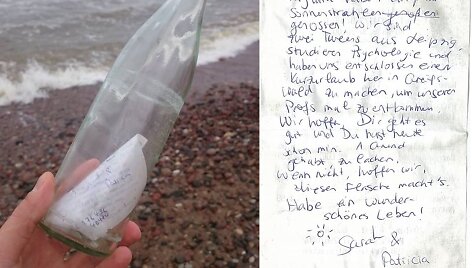 Sonnenstrahlen
genossen! Wir sind
zwei Twens aus Leipzig,
studieren Psychologie und
haben uns entschlossen einen
Kurzurlaub hier in Greifs-
wald zu machen, um unseren
Profs mal zu entkommen.
Wir hoffen, Dir geht es
gut und Du hast heute
schon min. 1 Grund
gehabt, zu lachen.
Wenn nicht, hoffen wir,
diese Flasche macht's.
Habe ein wunder-
schönes Leben!
Sarah &
Patricia